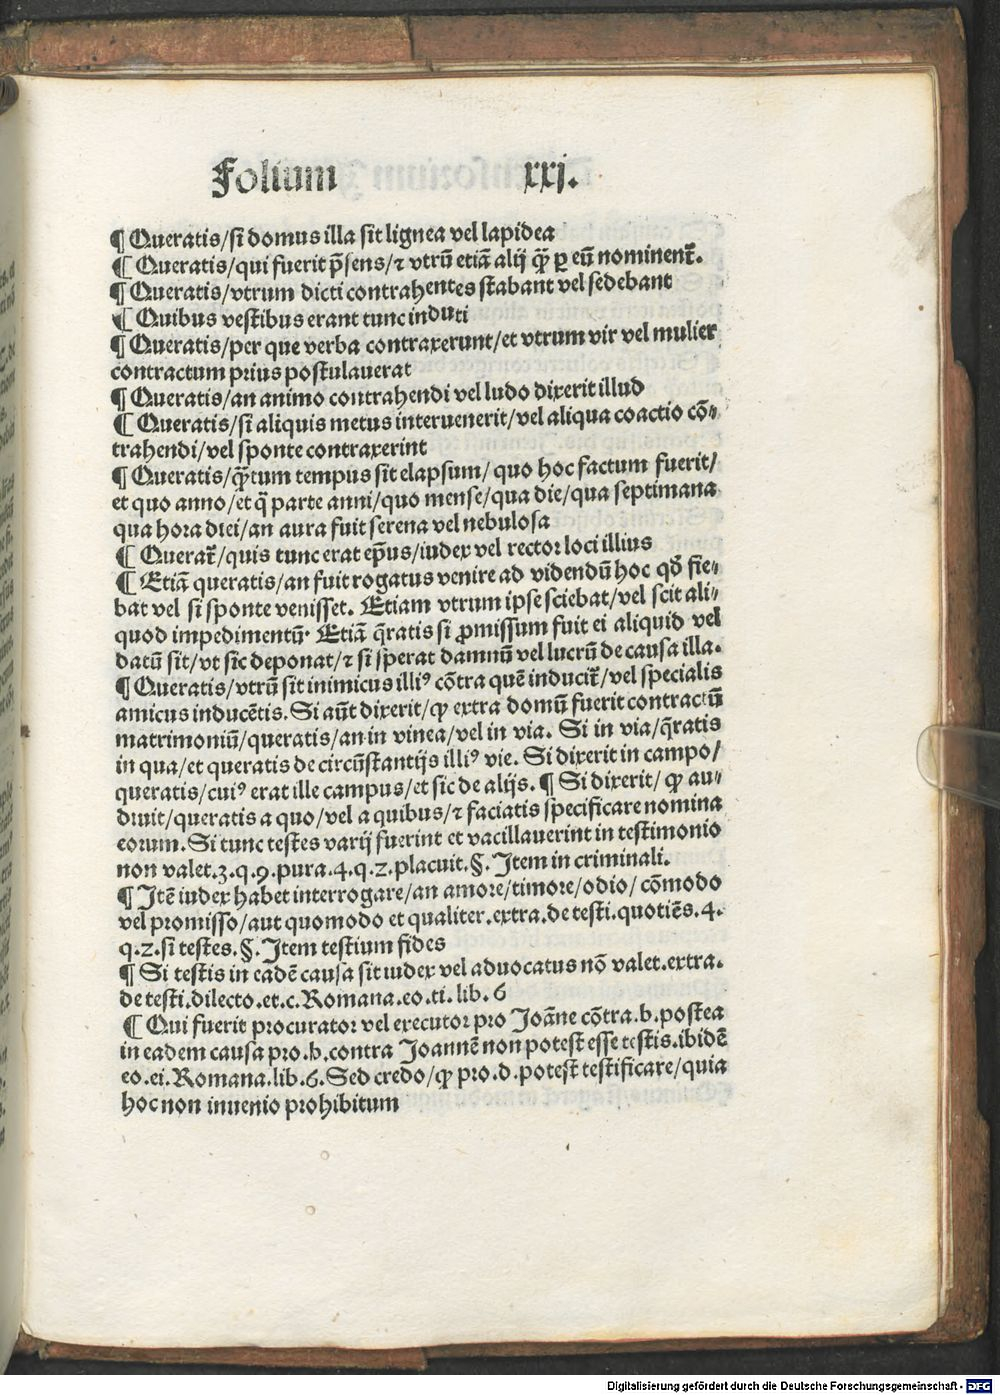 Folium xxj.
¶ Queratis/si domus illa sit lignea vel lapidea
¶ Queratis/qui fuerit p̄sens/⁊ vtrū etiā alij q̄ꝫ ꝑ eū nominent᷑.
¶ Queratis/vtrum dicti contrahentes stabant vel sedebant
¶ Quibus vestibus erant tunc induti
¶ Queratis/per que verba contraxerunt/et vtrum vir vel mulier
contractum prius postulauerat
¶ Queratis/an animo contrahendi vel ludo dixerit illud
¶ Queratis/si aliquis metus interuenerit/vel aliqua coactio cō⸗
trahendi/vel sponte contraxerint
¶ Queratis/q̄ꝫtum tempus sit elapsum/quo hoc factum fuerit/
et quo anno/et q̄ parte anni/quo mense/qua die/qua septimana
qua hora diei/an aura fuit serena vel nebulosa
¶ Querat᷑/quis tunc erat ep̄us/iudex vel rector loci illius
¶ Etiā queratis/an fuit rogatus venire ad videndū hoc qō fie⸗
bat vel si sponte venisset. Etiam vtrum ipse sciebat/vel scit ali⸗
quod impedimentū. Etiā q̄ratis si ꝓmissum fuit ei aliquid vel
datū sit/vt sic deponat/⁊ si sperat damnū vel lucrū de causa illa.
¶ Queratis/vtrū sit inimicus illiꝰ cōtra quē inducit᷑/vel specialis
amicus inducētis. Si aūt dixerit/ꝙ extra domū fuerit contractū
matrimoniū/queratis/an in vinea/vel in via. Si in via/q̄ratis
in qua/et queratis de circūstantijs illiꝰ vie. Si dixerit in campo/
queratis/cuiꝰ erat ille campus/et sic de alijs. ¶ Si dixerit/ꝙ au⸗
diuit/queratis a quo/vel a quibus/⁊ faciatis specificare nomina
eorum. Si tunc testes varij fuerint et vacillauerint in testimonio
non valet.3.q.9.pura.4.q.2.placuit.§.Item in criminali.
¶ Itē iudex habet interrogare/an amore/timore/odio/cōmodo
vel promisso/aut quomodo et qualiter.extra.de testi.quotiēs.4.
q.2.si testes.§.Item testium fides
¶ Si testis in eadē causa sit iudex vel aduocatus nō valet.extra.
de testi.dilecto.et.c.Romana.eo.ti.lib.6
¶ Qui fuerit procurator vel executor pro Joāne cōtra.b.postea
in eadem causa pro.b.contra Joannē non potest esse testis.ibidē
eo.ei.Romana.lib.6.Sed credo/ꝙ pro.d.potest testificare/quia
hoc non inuenio prohibitum
Digitalisierung gefördert durch die Deutsche Forschungsgemeinschaft - DFG